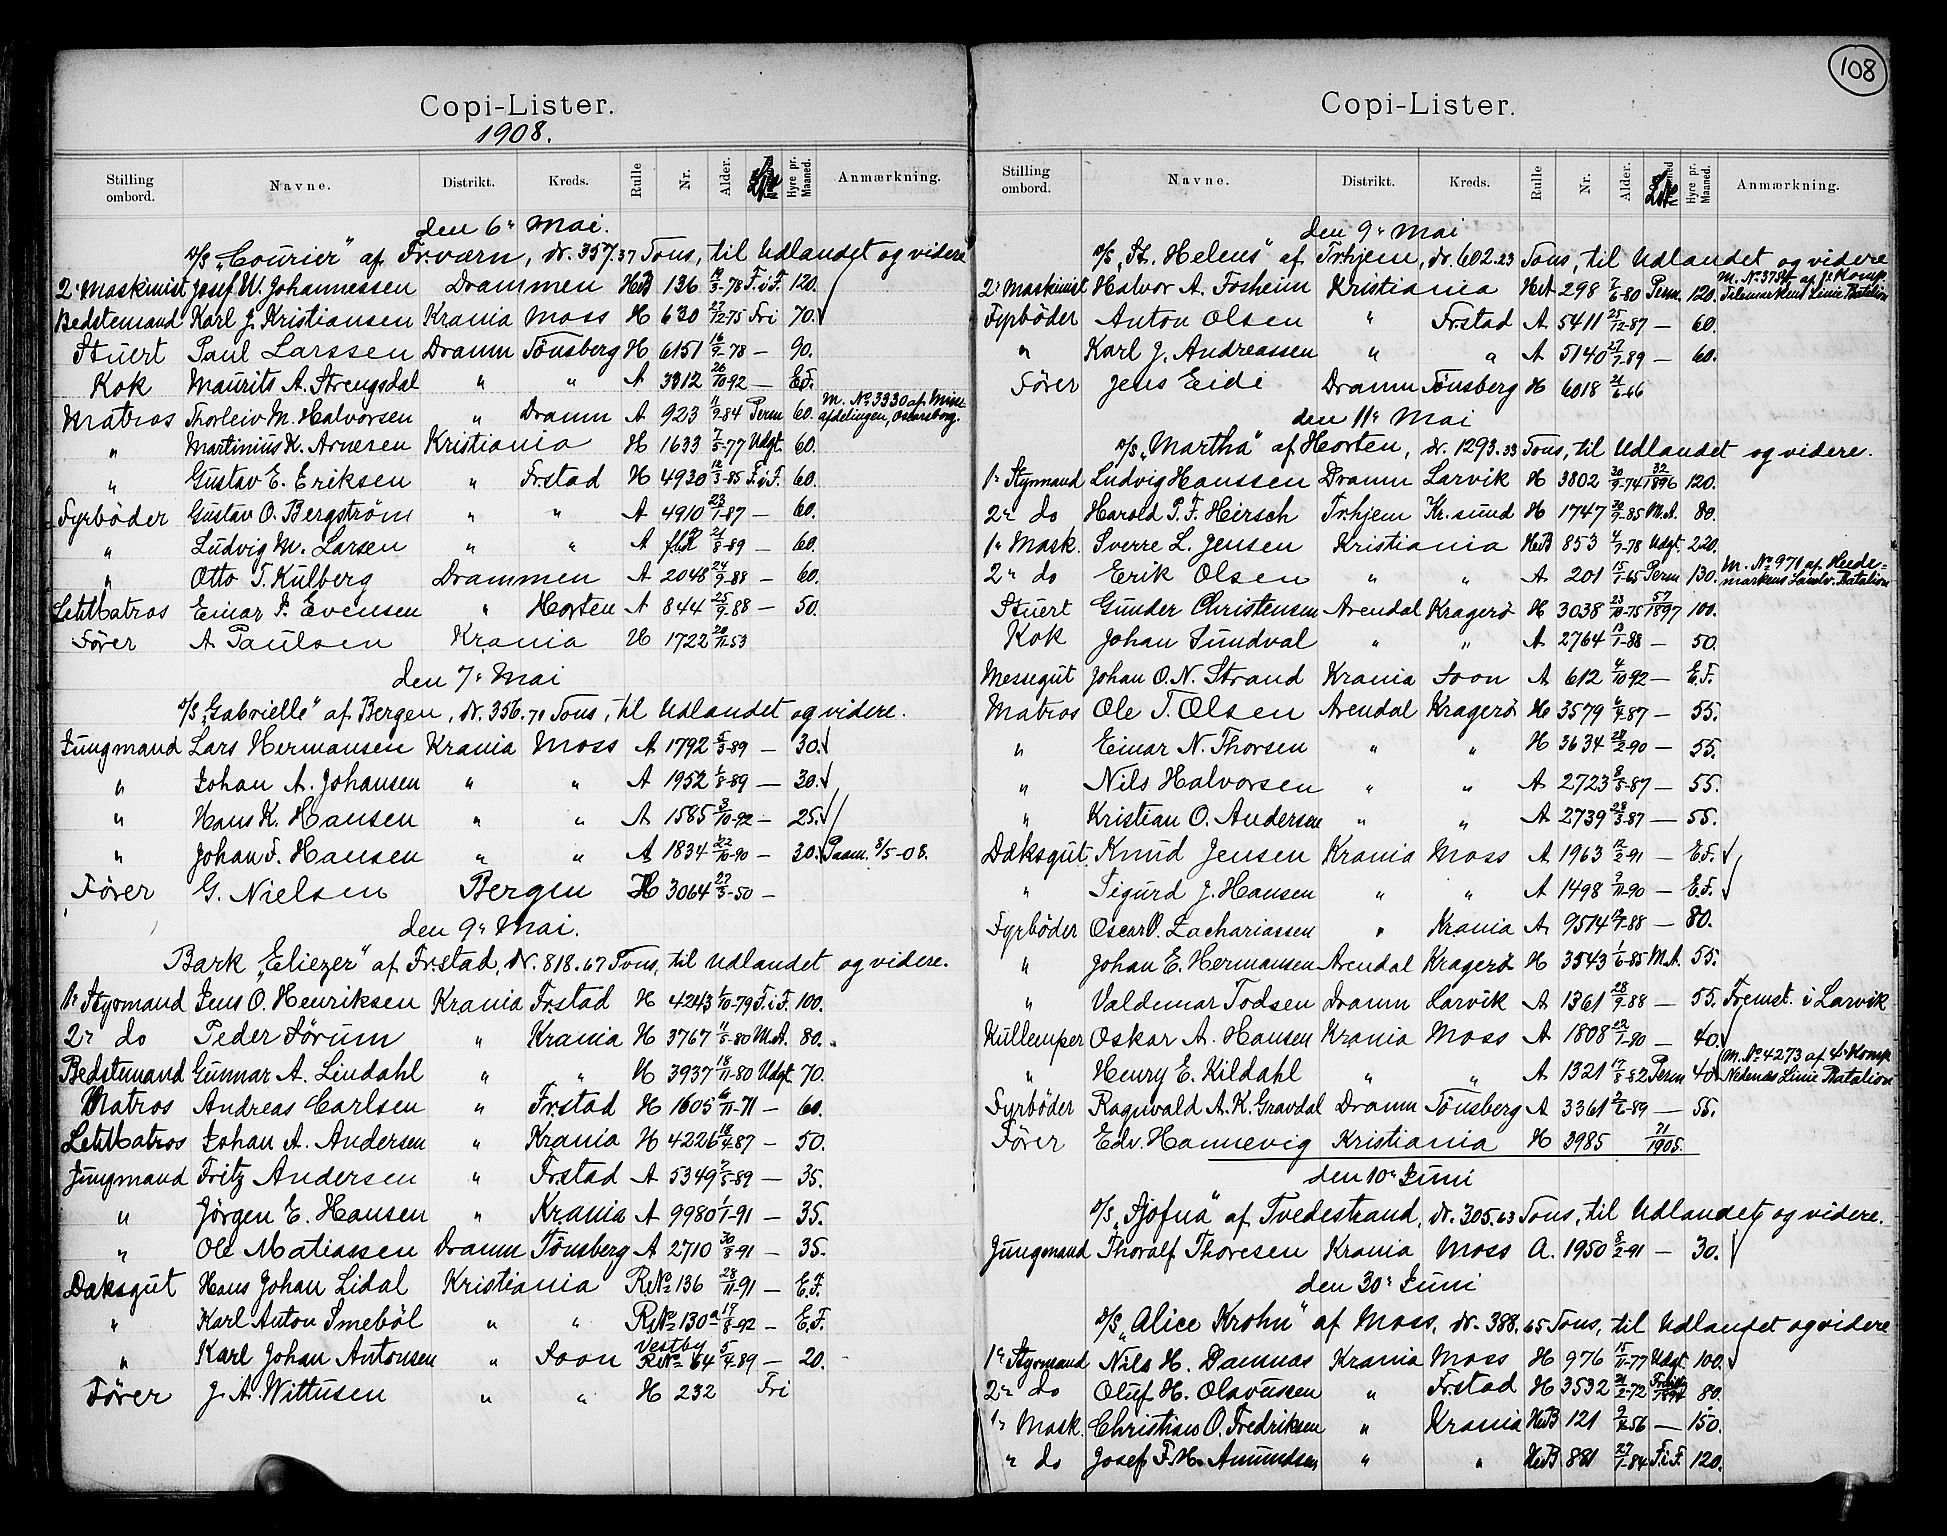 Copi-Lister.
1908.
Stilling ombord. Navne. Distrikt. Kreds. Rulle Nr. Alder. Hyre pr. Maaned. Anmærkning.
den 6te Mai.
D/S „Courier" af Fr.værn, dr. 357.37 Tons, til Udlandet og videre
2. Maskinist Josef W. Johannessen Drammen HrB 136 19/3-78 F.i F. 120.
Bedstemand Karl J. Kristiansen Krania Moss H 630 27/12-75 Fri 70.
Stuert Paul Larssen Dramn Tönsberg H 6151 16/9-78 — 90.
Kok Maurits A. Strengsdal " " A 3312 26/10-92 — E.F.
Matros Thorleiv M. Halvorsen " Dramn A 923 11/9-84 Perm 60. M. No. 3330 af Mine-
afdelingen, Oscarsborg.
" Martinius K. Arnesen Kristiania H 1633 7/5-77 Udgt. 60.
" Gustav E. Eriksen " Fr.stad H 4930 12/3-85 F.i F. 60.
Fyrbøder Gustav O. Bergström " " A 4910 23/1-87 — 60.
" Ludvig M. Larsen " " A 21/8-89 — 60.
" Otto T. Kulberg Drammen A 2048 24/9-88 — 60.
LetMatros Einar F. Evensen " Horten A 844 25/9-88 — 50.
Fører A Paulsen Krania H 1722 20/11-53
den 7de Mai
D/S „Gabrielle" af Bergen, dr. 356.71 Tons, til Udlandet og videre.
Jungmand Lars Hermansen Krania Moss A 1792 5/3-89 — 30.
" Johan A. Johansen " " A 1952 1/8-89 — 30.
" Hans K. Hansen " " A 1585 3/10-92 — 25.
" Johan F. Hansen " " A 1834 22/10-90 — 30. Paam. 8/5-08.
Fører G. Nielsen Bergen H 3064 27/3-50 —
den 9de Mai.
Bark „Eliezer" af Fr.stad, dr. 818.67 Tons, til Udlandet og videre.
1e Styrmand Jens O. Henriksen Krania Fr.stad H 4243 1/10-79 F.i F. 100.
2n do Peder Sörum " Krania H 3767 11/5-80 M.A. 80.
Bedstemand Gunnar A. Lindahl " " H 3937 18/11-80 Udgt. 70.
Matros Andreas Carlsen " Fr.stad H 1605 16/11-71 — 60.
LetMatros Johan A. Andersen " Krania H 4226 18/4-87 — 50.
Jungmand Fritz Andersen " Fr.stad A 5349 2/5-89 — 35.
" Jörgen E. Hansen " Krania A 9980 1/1-91 — 35.
" Ole Matiassen Dramn Tönsberg A 2710 30/8-91 — 35.
Dæksgut Hans Johan Lidal Kristiania R.No. 136 28/11-91 — E.F.
" Karl Anton Smeböl " " R.No. 130a 19/8-92 — E.F.
" Karl Johan Antonsen " Soon Vestby R.No. 64 5/4-89 — 20.
Fører J. A. Wittusen " " H 232 Fri
108
Copi-Lister.
Stilling ombord. Navne. Distrikt. Kreds. Rulle Nr. Alder. Hyre pr. Maaned. Anmærkning.
den 9de Mai
D/S „St. Helens" af Tr.hjem, dr. 602.23 Tons, til Udlandet og videre
2. Maskinist Halvor A. Fosheim Kristiania HrA 298 7/6-80 Perm. 120. M. No. 3754 af 1. Komp.
Telemarkens Linie Batalion
Fyrbøder Anton Olsen " Fr.stad A 5411 25/12-87 — 60.
" Karl J. Andreassen " " A 5140 27/7-89 — 60.
Fører Jens Eide Dramn Tönsberg H 6018 21/6-66
den 11te Mai
D/S „Martha" af Horten, dr. 1293.33 Tons, til Udlandet og videre.
1e Styrmand Ludvig Hanssen Dramn Larvik H 3802 30/9-74 32/1896 120.
2n do Harold P. F. Hirsch Tr.hjem Kr.sund H 1747 30/9-85 M.A. 80.
1e Mask. Sverre L. Jensen Kristiania HrB 853 4/7-78 Udgt. 220.
2n do Erik Olsen " " A 201 15/1-65 Perm 130. M. No. 971 af Hede-
markens Landv. Batalion
Stuert Gunder Christensen Arendal Kragerö H 3038 23/10-75 57/1897 100.
Kok Johan Sundval " " A 2764 13/1-88 — 50.
Messegut Johan O. N. Strand Krania Soon A 612 4/10-92 — E.F.
Matros Ole T. Olsen Arendal Kragerö H 3579 6/4-87 — 55.
" Einar N. Thorsen " " H 3634 28/2-90 — 55.
" Nils Halvorsen " " A 2723 8/5-87 — 55.
" Kristian O. Andersen " " A 2739 28/3-87 — 55.
Dæksgut Knud Jensen Krania Moss A 1963 12/2-91 — E.F.
" Sigurd J. Hansen " " A 1498 3/11-90 — E.F.
Fyrbøder Oscar O. Zachariassen " Krania A 9514 12/7-88 — 80.
" Johan E. Hermansen Arendal Kragerö H 3543 1/6-85 M.A. 55.
" Valdemar Todsen Dramn Larvik A 1361 28/9-88 — 55. Fremst. i Larvik
Kullemper Oskar A. Hansen Krania Moss A 1808 22/1-90 — 40.
" Henry E. Kildahl " " A 1321 17/8-82 Perm 40. M. No. 4273 af 4. Komp.
Nedenæs Linie Batalion
Fyrbøder Ragnvald A. K. Gravdal Dramn Tönsberg A 3361 2/6-89 — 55.
Fører Edv. Hannevig Kristiania H 3985 71/1905.
den 10de Juni
D/S „Sjofna" af Tvedestrand, dr. 305.63 Tons, til Udlandet og videre.
Jungmand Thoralf Thoresen Krania Moss A. 1950 8/2-91 — 30.
den 30te Juni
D/S „Alice Krohn" af Moss, dr. 388.65 Tons, til Udlandet og videre
1e Styrmand Nils H. Damnas Krania Moss H 976 15/11-77 Udgt. 100.
2n do Oluf H. Olavussen " Fr.stad H 3532 21/2-72 80.
1e Mask. Christian O. Fredriksen " Krania HrB 121 9/4-56 — 150.
" do Josef F. H. Amundsen " " HrB 881 27/1-84 F.i F. 120.